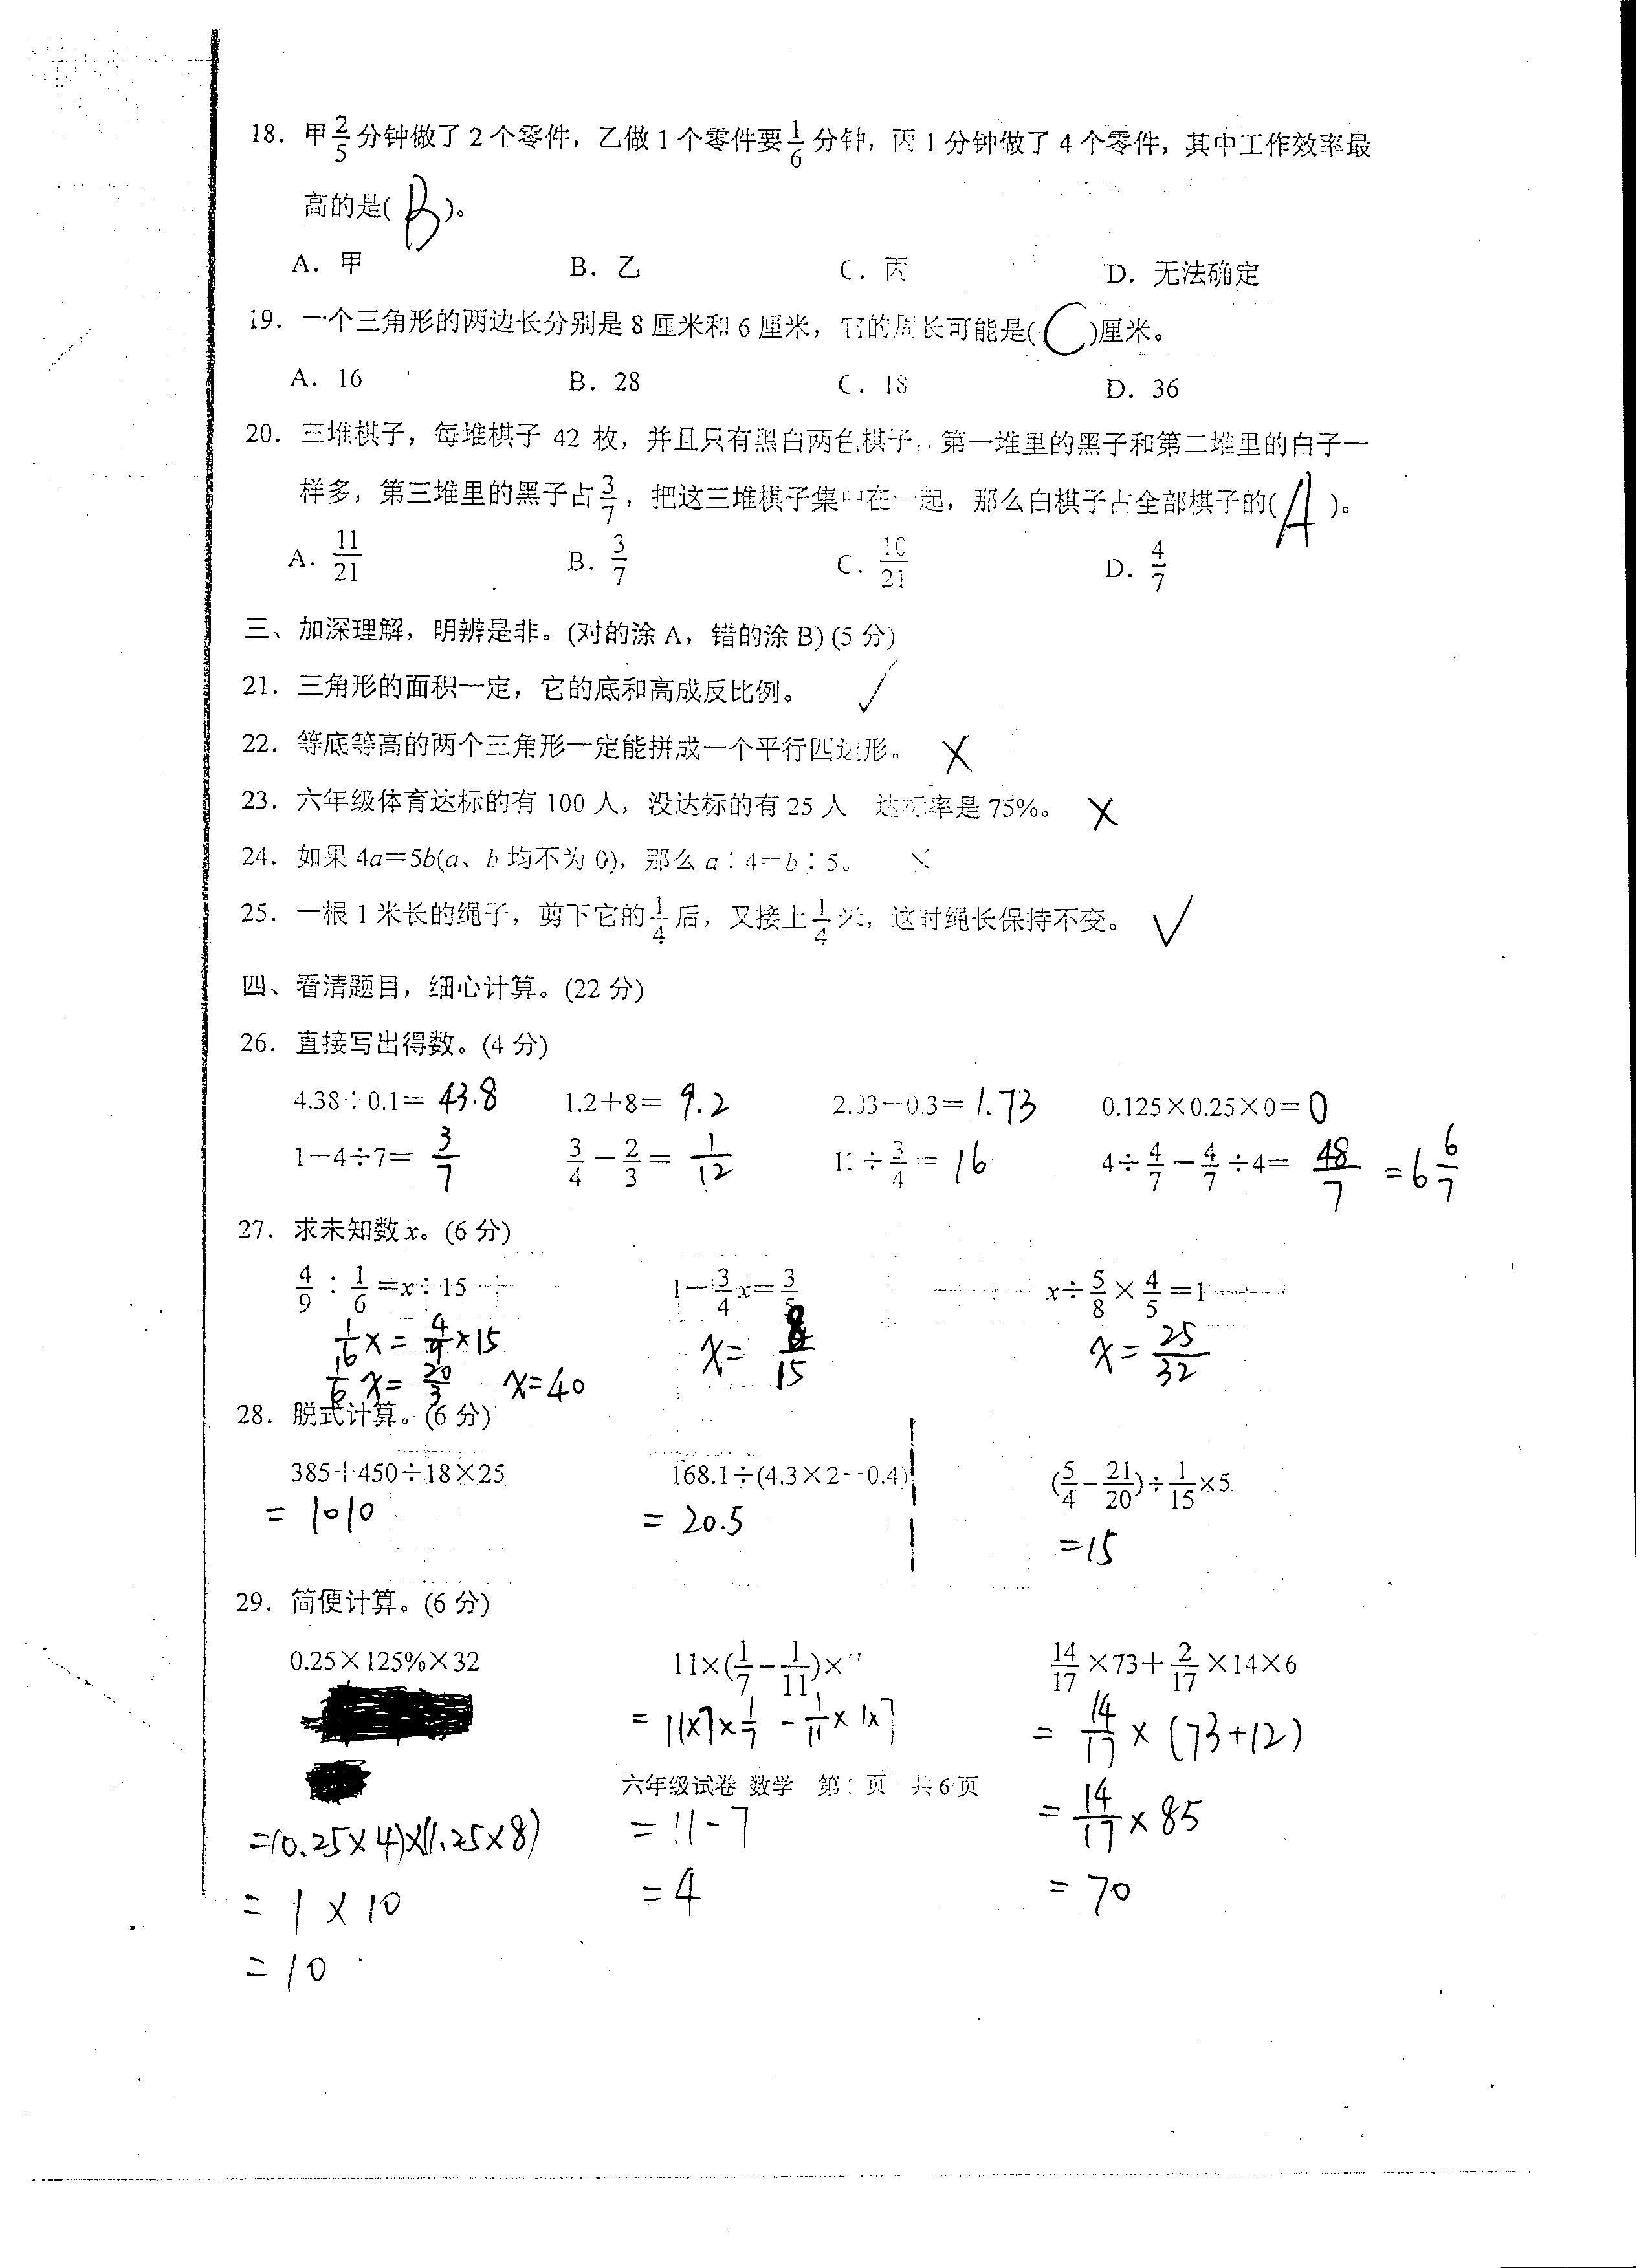 18. 甲2/5分钟做了2个零件，乙做1个零件要1/6分钟，丙1分钟做了4个零件，其中工作效率最
高的是( B )。
A. 甲 B. 乙 C. 丙 D. 无法确定
19. 一个三角形的两边长分别是8厘米和6厘米，它的周长可能是( C )厘米。
A. 16 B. 28 C. 18 D. 36
20. 三堆棋子，每堆棋子 42 枚，并且只有黑白两色棋子. 第一堆里的黑子和第二堆里的白子一
样多，第三堆里的黑子占3/7，把这三堆棋子集中在一起，那么白棋子占全部棋子的( A )。
A. 11/21 B. 3/7 C. 10/21 D. 4/7
三、加深理解，明辨是非。(对的涂 A，错的涂 B) (5 分)
21. 三角形的面积一定，它的底和高成反比例。 ✓
22. 等底等高的两个三角形一定能拼成一个平行四边形。 ×
23. 六年级体育达标的有 100 人，没达标的有 25 人 达标率是 75%。 ×
24. 如果 4a=5b(a、b 均不为 0)，那么 a∶4=b∶5。 ×
25. 一根 1 米长的绳子，剪下它的1/4后，又接上1/4米，这时绳长保持不变。 ✓
四、看清题目，细心计算。(22 分)
26. 直接写出得数。(4 分)
4.38÷0.1= 43.8 1.2+8= 9.2 2.03-0.3= 1.73 0.125×0.25×0= 0
1-4÷7= 3/7 3/4-2/3= 1/12 ÷3/4= 16 4÷4/7-4/7÷4= 48/7 =6 6/7
27. 求未知数 x。(6 分)
4/9∶1/6=x÷15 1-3/4x=3/5 x÷5/8×4/5=1
1/6x=4/9×15 x=8/15 x=25/32
1/6x=20/3 x=40
28. 脱式计算。(6 分)
385+450÷18×25 168.1÷(4.3×2-0.4) (5/4-21/20)÷1/15×5
=1010 =20.5 =15
29. 简便计算。(6 分)
0.25×125%×32 11×(1/7-1/11)× 14/17×73+2/17×14×6
=11×7×1/7-1/11×11×7 =14/17×(73+12)
六年级试卷 数学 第 页 共 6 页
=(0.25×4)×(1.25×8) =11-7 =14/17×85
=1×10 =4 =70
=10